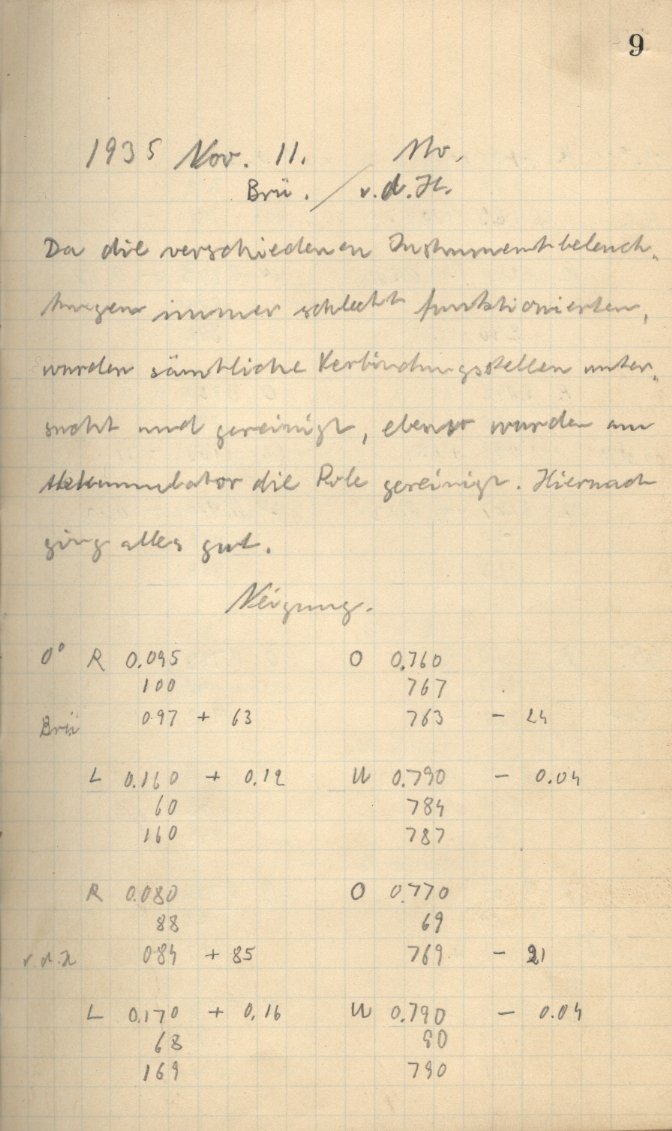 9
1935 Nov. 11. Mo.
Brü. / v.d.H.
Da die verschiedenen Instrumentbeleuch-
tungen immer schlecht funktionierten,
wurden sämtliche Verbindungsstellen unter-
sucht und gereinigt, ebenso wurden am
Akkumulator die Pole gereinigt. Hiernach
ging alles gut.
Neigung.
0° R 0.095 O 0.760
100 767
Brü 097 + 63 763 - 24
L 0.160 + 0.12 U 0.790 - 0.04
60 784
160 787
R 0.080 O 0.770
88 69
v.d.H 084 + 85 769 - 21
L 0.170 + 0.16 U 0.790 - 0.04
68 90
169 790